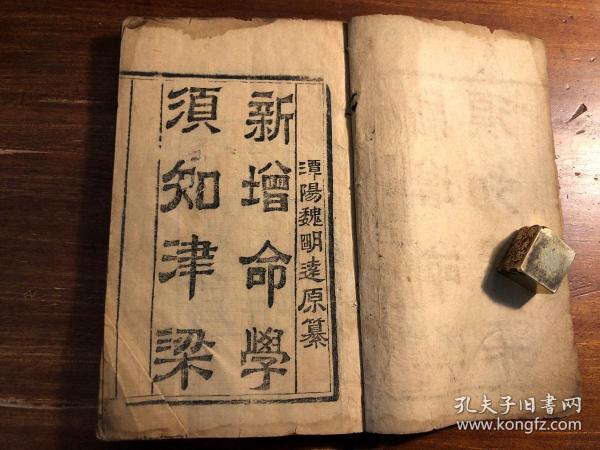 潭陽魏明達原纂
新增命學
須知津梁
孔夫子旧書网
www.kongfz.com